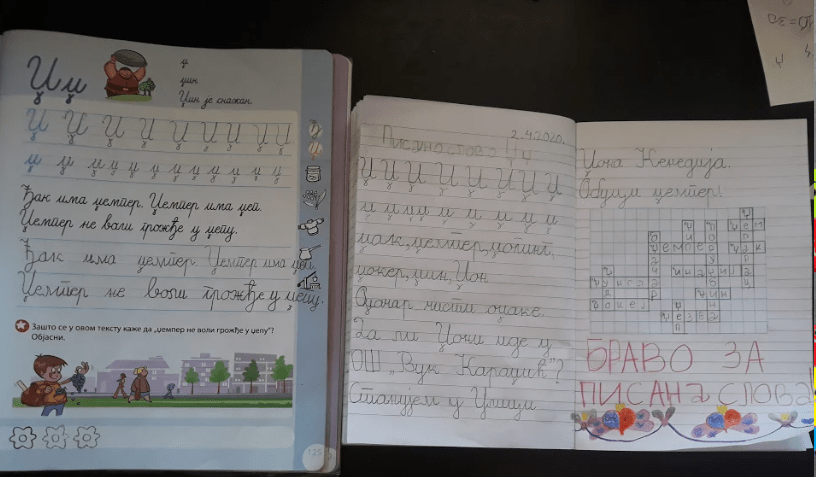 Џ џ
џ
џин
Џин је снажан.
Џ Џ Џ Џ Џ Џ Џ Џ Џ
џ џ џ џ џ џ џ џ џ џ џ
Ђак има џемпер. Џемпер има џеп.
Џемпер не воли грожђе у џепу.
Ђак има џемпер. Џемпер има џеп.
Џемпер не воли грожђе у џепу.
Зашто се у овом тексту каже да „џемпер не воли грожђе у џепу"?
Објасни.
125
2.4.2020.
Писано слово Џ џ
Џ Џ Џ Џ Џ Џ Џ Џ
џ џ џ џ џ џ џ џ џ
џак, џемпер, џогинг,
џокер, џин, Џон.
Оџачар чисти оџаке.
Да ли Џони иде у
ОШ „Вук Караџић"?
Станујем у Улици
Џона Кенедија.
Обуци џемпер!
БРАВО ЗА
ПИСАНА СЛОВА!